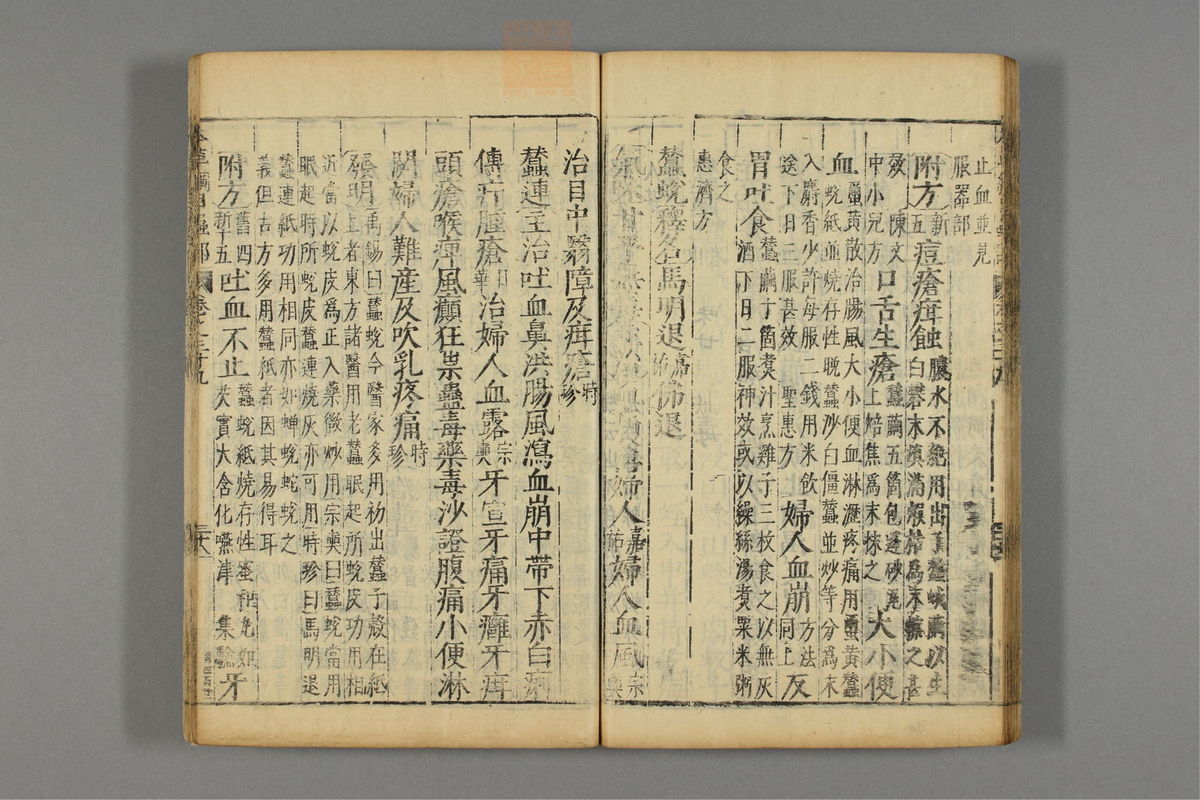 止血並見
服器部
附方新五痘瘡疳蝕膿水不絶用出了蠶蛾繭以生
白礬末填滿煅枯爲末擦之甚
效陳文
中小兒方口舌生瘡蠶繭五箇包蓬砂瓦
上焙焦爲末抹之大小便
血蠒黄散治腸風大小便血淋瀝疼痛用蠒黄蠶
蛻紙並燒存性晚蠶沙白僵蠶並炒等分爲末
入麝香少許每服二錢用米飲
送下日三服甚效聖惠方婦人血崩方法
同上反
胃吐食蠶繭十箇煮汁烹雞子三枚食之以無灰
酒下日二服神效或以繰絲湯煮粟米粥
食之
惠濟方
蠶蛻釋名馬明退嘉祐佛退
氣味甘平無毒主治血病益婦人嘉祐婦人血風宗奭
治目中翳障及疳瘡時珍
蠶連主治吐血鼻洪腸風瀉血崩中帶下赤白痢
傅疔腫瘡日華治婦人血露宗奭牙宣牙痛牙癰牙疳
頭瘡喉痺風癲狂祟蠱毒藥毒沙證腹痛小便淋
閟婦人難産及吹乳疼痛時珍
發明禹錫曰蠶蛻今醫家多用初出蠶子殼在紙
上者東方諸醫用老蠶眠起所蛻皮功用相
近當以蛻皮爲正入藥微炒用宗奭曰蠶蛻當用
眠起時所蛻皮蠶連燒灰亦可用時珍曰馬明退
蠶連紙功用相同亦如蟬蛻蛇蛻之
義但古方多用蠶紙者因其易得耳
附方舊四新十五吐血不止蠶蛻紙燒存性蜜和丸如
芡實大含化嚥津集驗牙